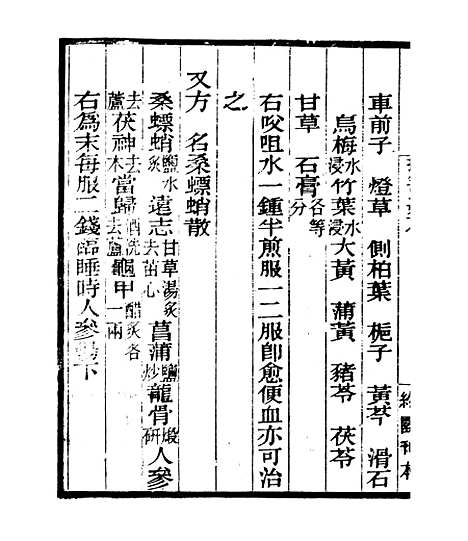 車前子 燈草 側柏葉 梔子 黃芩 滑石
烏梅水浸 竹葉水浸 大黃 蒲黃 豬苓 茯苓
甘草 石膏各等分
右㕮咀水一鍾半煎服一二服卽愈便血亦可治
之
又方 名桑螵蛸散
桑螵蛸鹽水炙 遠志甘草湯炙去苗心 菖蒲鹽炒 龍骨煅研 人參
去蘆 茯神去木 當歸酒洗去蘆 龜甲醋炙各一兩
右爲末每服二錢臨睡時人參湯下